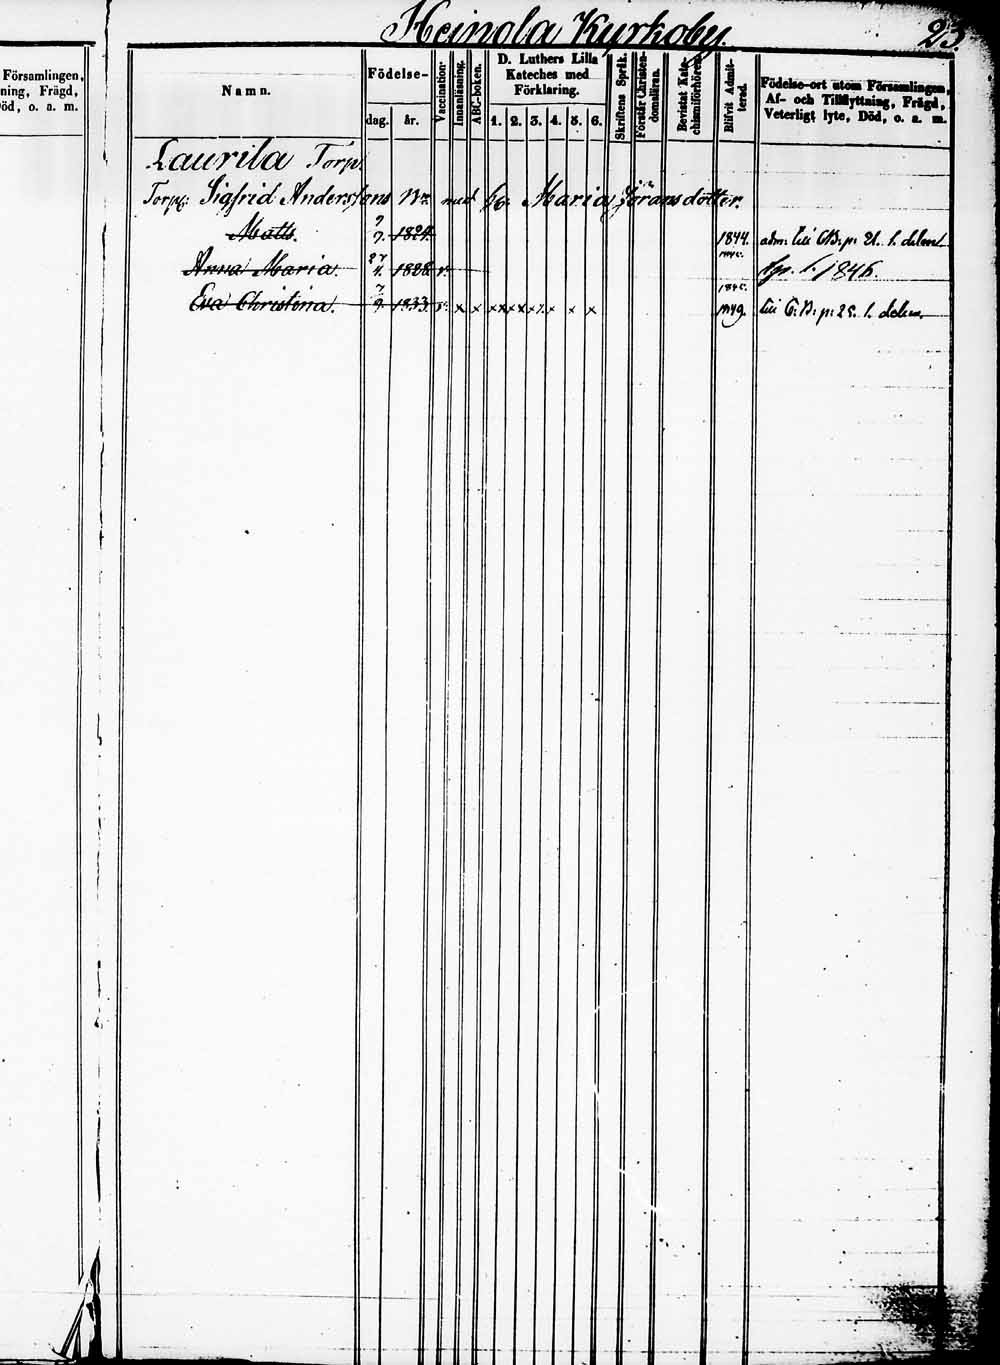 Heinola Kyrkoby. 23.
Församlingen,
ning, Frägd,
öd, o. a. m.
Namn.
Födelse-
dag. år.
Vaccination:
Innanläsning.
ABC-boken.
D. Luthers Lilla
Kateches med
Förklaring.
1. 2. 3. 4. 5. 6.
Skriftens Språk.
Förstår Christen-
domsläran.
Bevistat Kate-
chismiförhören.
Blifvit Admit-
terad.
Födelse-ort utom Församlingen,
Af- och Tillflyttning, Frägd,
Veterligt lyte, Död, o. a. m.
Laurila Torp.
Torp: Sigfrid Anderssons med Maria Jöransdotter.
Matts. 1824. 1844. adm: till p: 21. 1. delen.
Anna Maria. 27/4. 1828 v. 1846.
Eva Christina. 7/9. 1833. v: x x x x x x x x x till p: 25. 1. delen.